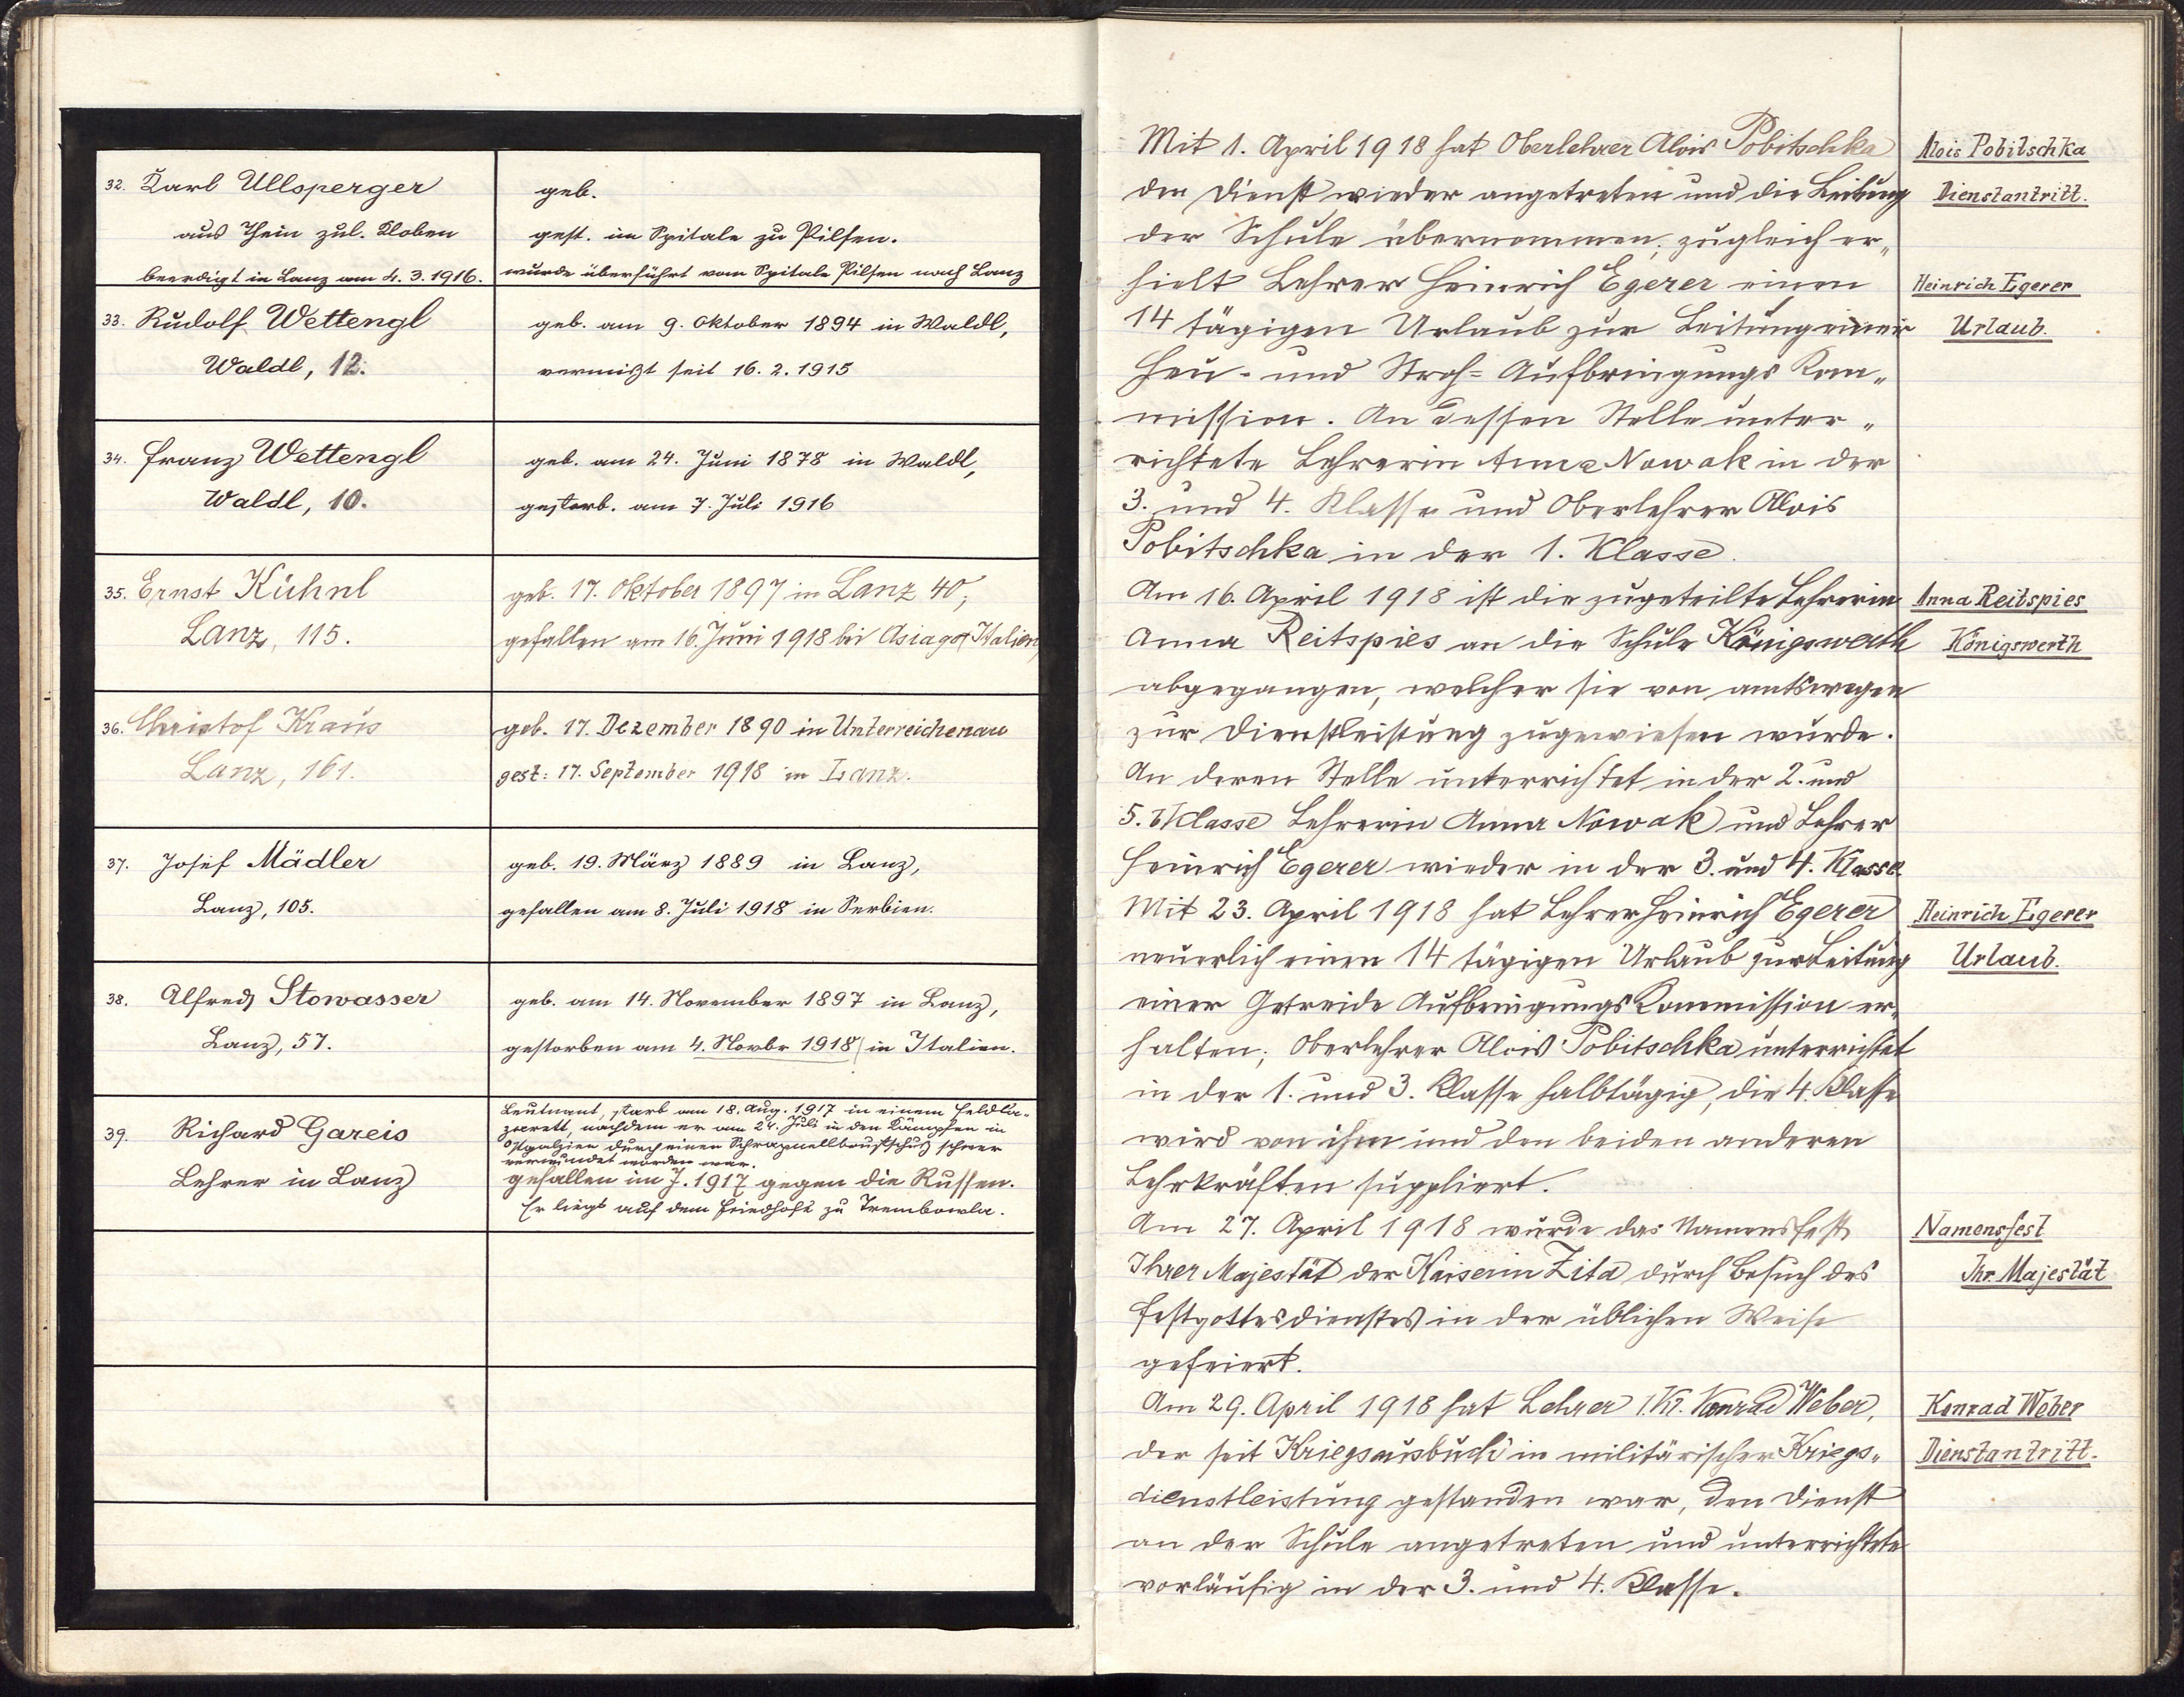 32. Karl Ullsperger
aus Thein zul. Kloben
beerdigt in Lanz am 4. 3. 1916.
geb.
gest. im Spitale zu Pilsen.
wurde überführt vom Spitale Pilsen nach Lanz
33. Rudolf Wettengl
Waldl, 12.
geb. am 9. Oktober 1894 in Waldl,
vermißt seit 16. 2. 1915
34. Franz Wettengl
Waldl, 10.
geb. am 24. Juni 1878 in Waldl,
gestorb. am 7. Juli 1916
35. Ernst Kühnl
Lanz, 115.
geb. 17. Oktober 1897 in Lanz 40,
gefallen am 16. Juni 1918 bei Asiago, Italien
36. Christof Kraus
Lanz, 161.
geb. 17. Dezember 1890 in Unterreichenau
gest: 17. September 1918 in Lanz.
37. Josef Mädler
Lanz, 105.
geb. 19. März 1889 in Lanz,
gefallen am 8. Juli 1918 in Serbien.
38. Alfred Stowasser
Lanz, 57.
geb. am 14. November 1897 in Lanz,
gestorben am 4. Novbr 1918 in Italien.
39. Richard Gareis
Lehrer in Lanz
Leutnant, starb am 18. Aug. 1917 in einem Feldla-
zarett, nachdem er am 24. Juli in den Kämpfen in
Ostgalizien durch einen Schrapnellbrustschuß schwer
verwundet worden war.
gefallen im J. 1917 gegen die Russen.
Er liegt auf dem Friedhofe zu Trembowla.
Mit 1. April 1918 hat Oberlehrer Alois Pobitschka
den Dienst wieder angetreten und die Leitung
der Schule übernommen; zugleich er„
hielt Lehrer Heinrich Egerer einen
14 tägigen Urlaub zur Leitung einer
Heu- und Stroh= Aufbringungs Kom„
mission. An dessen Stelle unter„
richtete Lehrerin Anna Nowak in der
3. und 4. Klasse und Oberlehrer Alois
Pobitschka in der 1. Klasse.
Am 16. April 1918 ist die zugeteilte Lehrerin
Anna Reitspies an die Schule Königswerth
abgegangen, welcher sie von amtswegen
zur Dienstleistung zugewiesen wurde.
An deren Stelle unterrichtet in der 2. und
5. Klasse Lehrerin Anna Nowak und Lehrer
Heinrich Egerer wieder in der 3. und 4. Klasse
Mit 23. April 1918 hat Lehrer Heinrich Egerer
neuerlich einen 14 tägigen Urlaub zur Leitung
einer Getreide Aufbringungs Kommission er„
halten; Oberlehrer Alois Pobitschka unterrichtet
in der 1. und 3. Klasse halbtägig, die 4. Klasse
wird von ihm und den beiden anderen
Lehrkräften suppliert.
Am 27. April 1918 wurde das Namensfest
Ihrer Majestät der Kaiserin Zita durch Besuch des
Festgottesdienstes in der üblichen Weise
gefeiert.
Am 29. April 1918 hat Lehrer I. Kl. Konrad Weber,
der seit Kriegsausbuch in militärischer Kriegs„
dienstleistung gestanden war, den Dienst
an der Schule angetreten und unterrichtete
vorläufig in der 3. und 4. Klasse.
Alois Pobitschka
Dienstantritt.
Heinrich Egerer
Urlaub.
Anna Reitspies
Königswerth
Heinrich Egerer
Urlaub.
Namensfest
Ihr. Majestät
Konrad Weber
Dienstantritt.